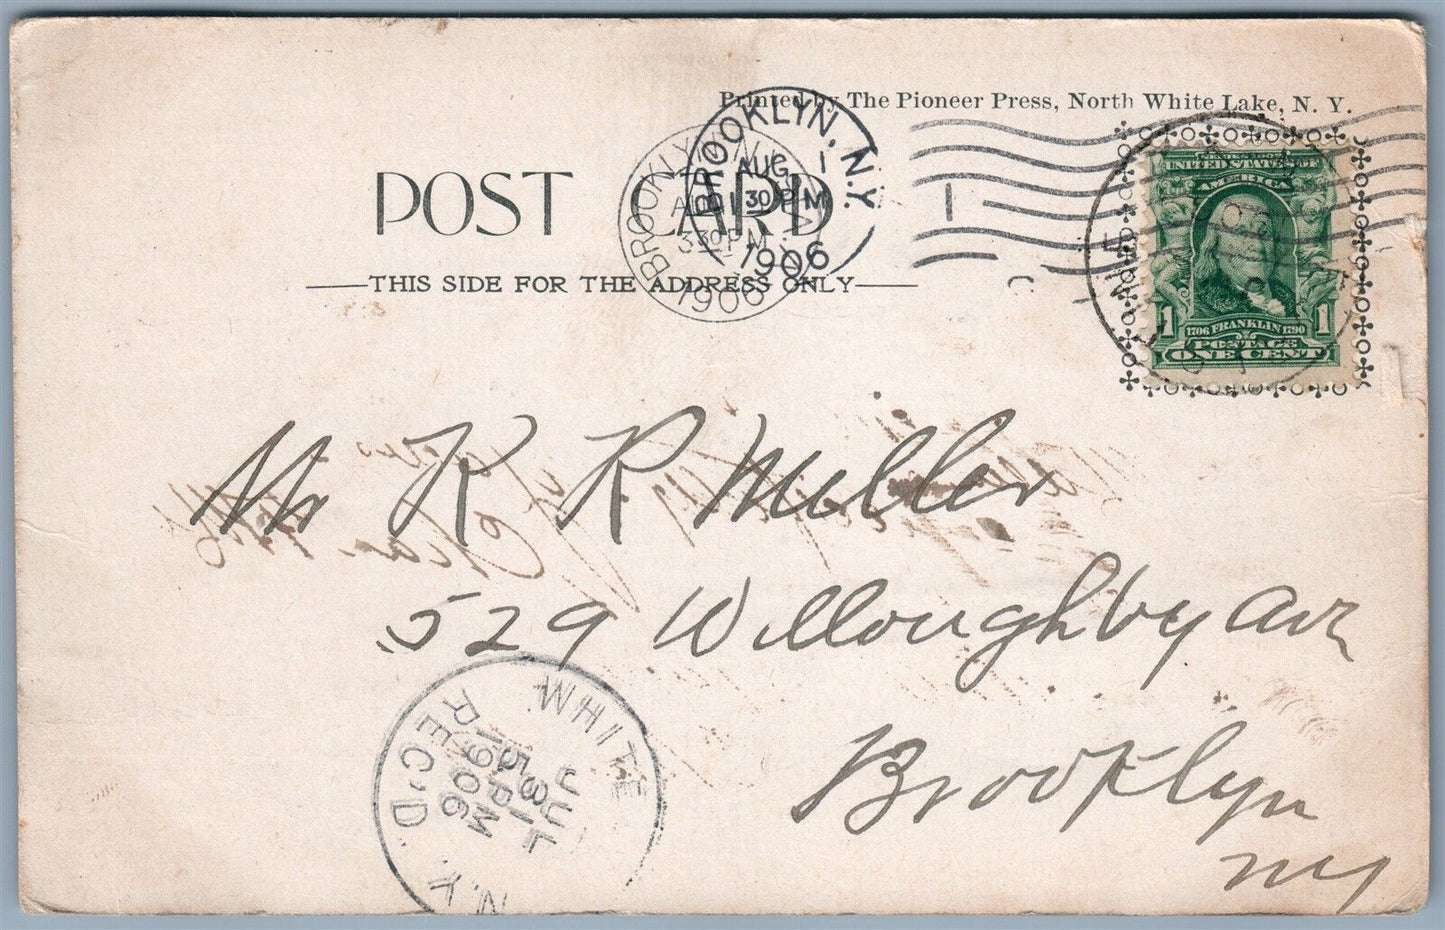 Printed by The Pioneer Press, North White Lake, N. Y.
BROOKLYN, N.Y.
AUG 1
30 PM
1906
BROOKLYN
330 PM
1906
POST CARD
THIS SIDE FOR THE ADDRESS ONLY
SERIES 1902
UNITED STATES OF
AMERICA
1 1706 FRANKLIN 1790 1
POSTAGE
ONE CENT
Mr K R Miller
529 Willoughby Ave
Brooklyn
NY
WHITE
N.Y.
JUL
31
5 PM
1906
REC'D.